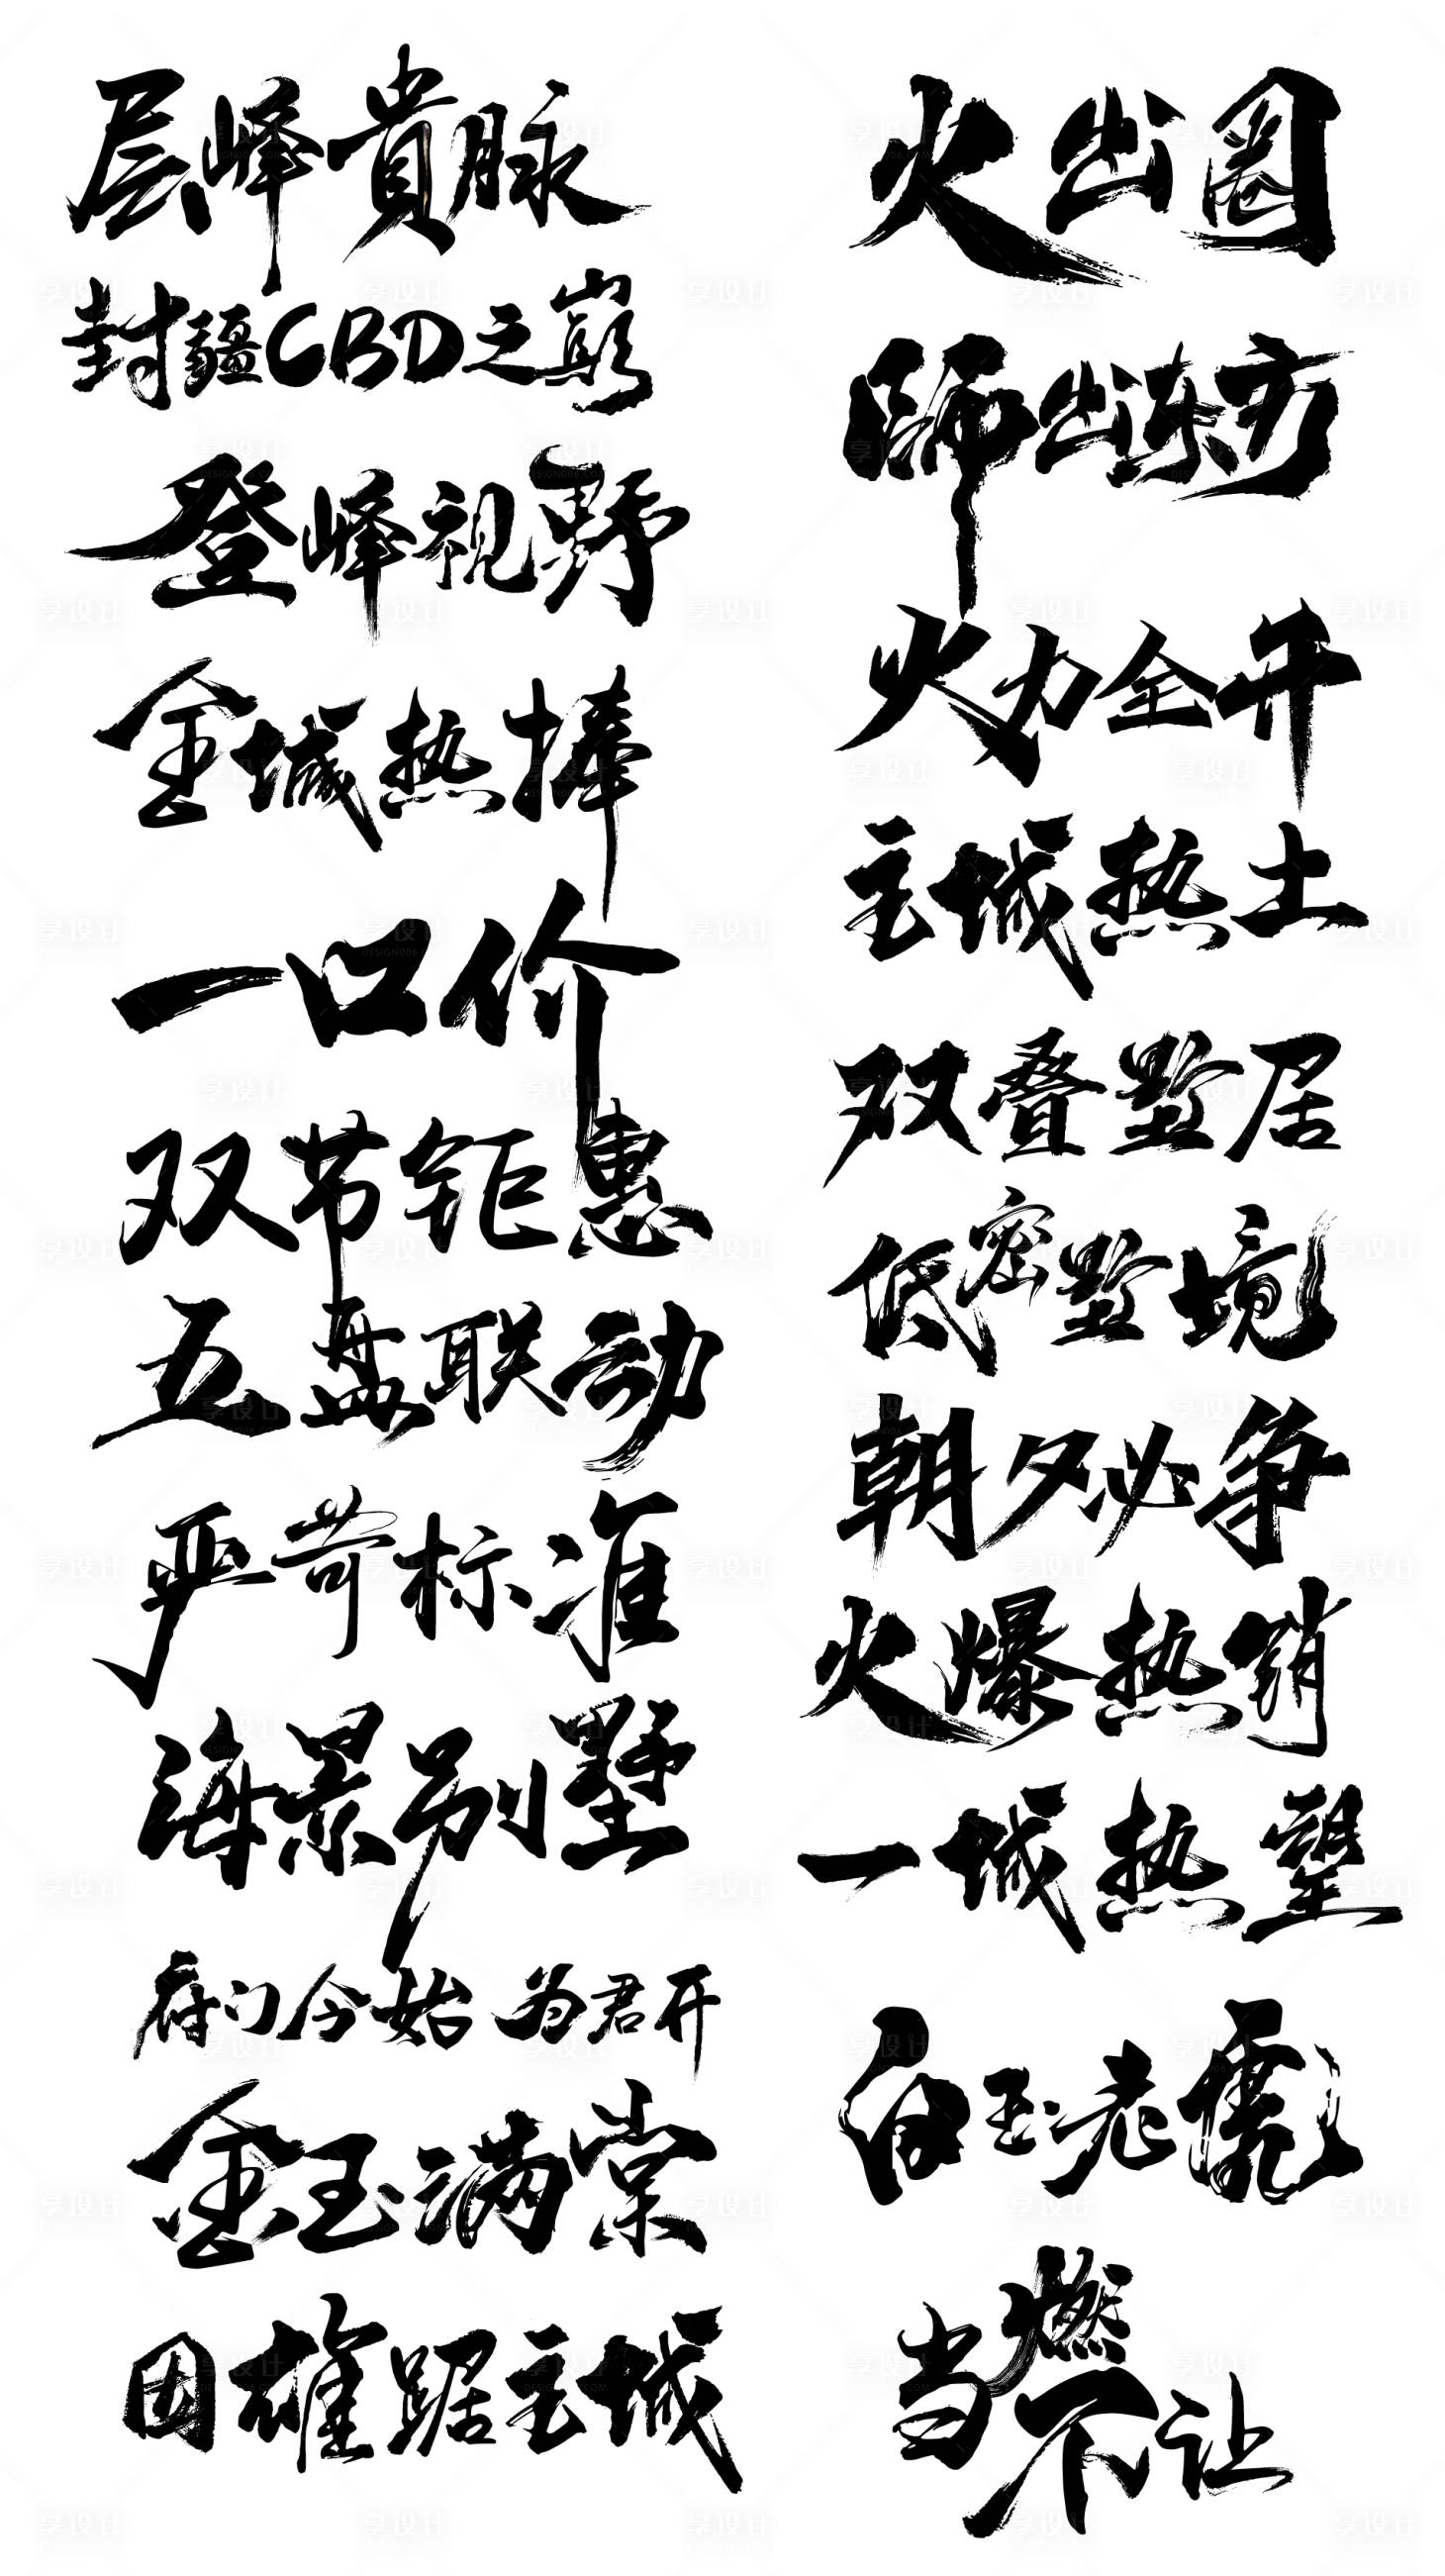 层峰貴脉
封疆CBD之巅
登峰视野
全城热捧
一口价
双节钜惠
五盘联动
严苛标准
海景别墅
府门今始 为君开
金玉满棠
因雄踞主城
火出圈
師出东方
火力全开
主城热土
双叠墅居
低密墅境
朝夕必争
火爆热销
一城热望
白玉老虎
当燃
不让
享设计
DESIGN006.COM